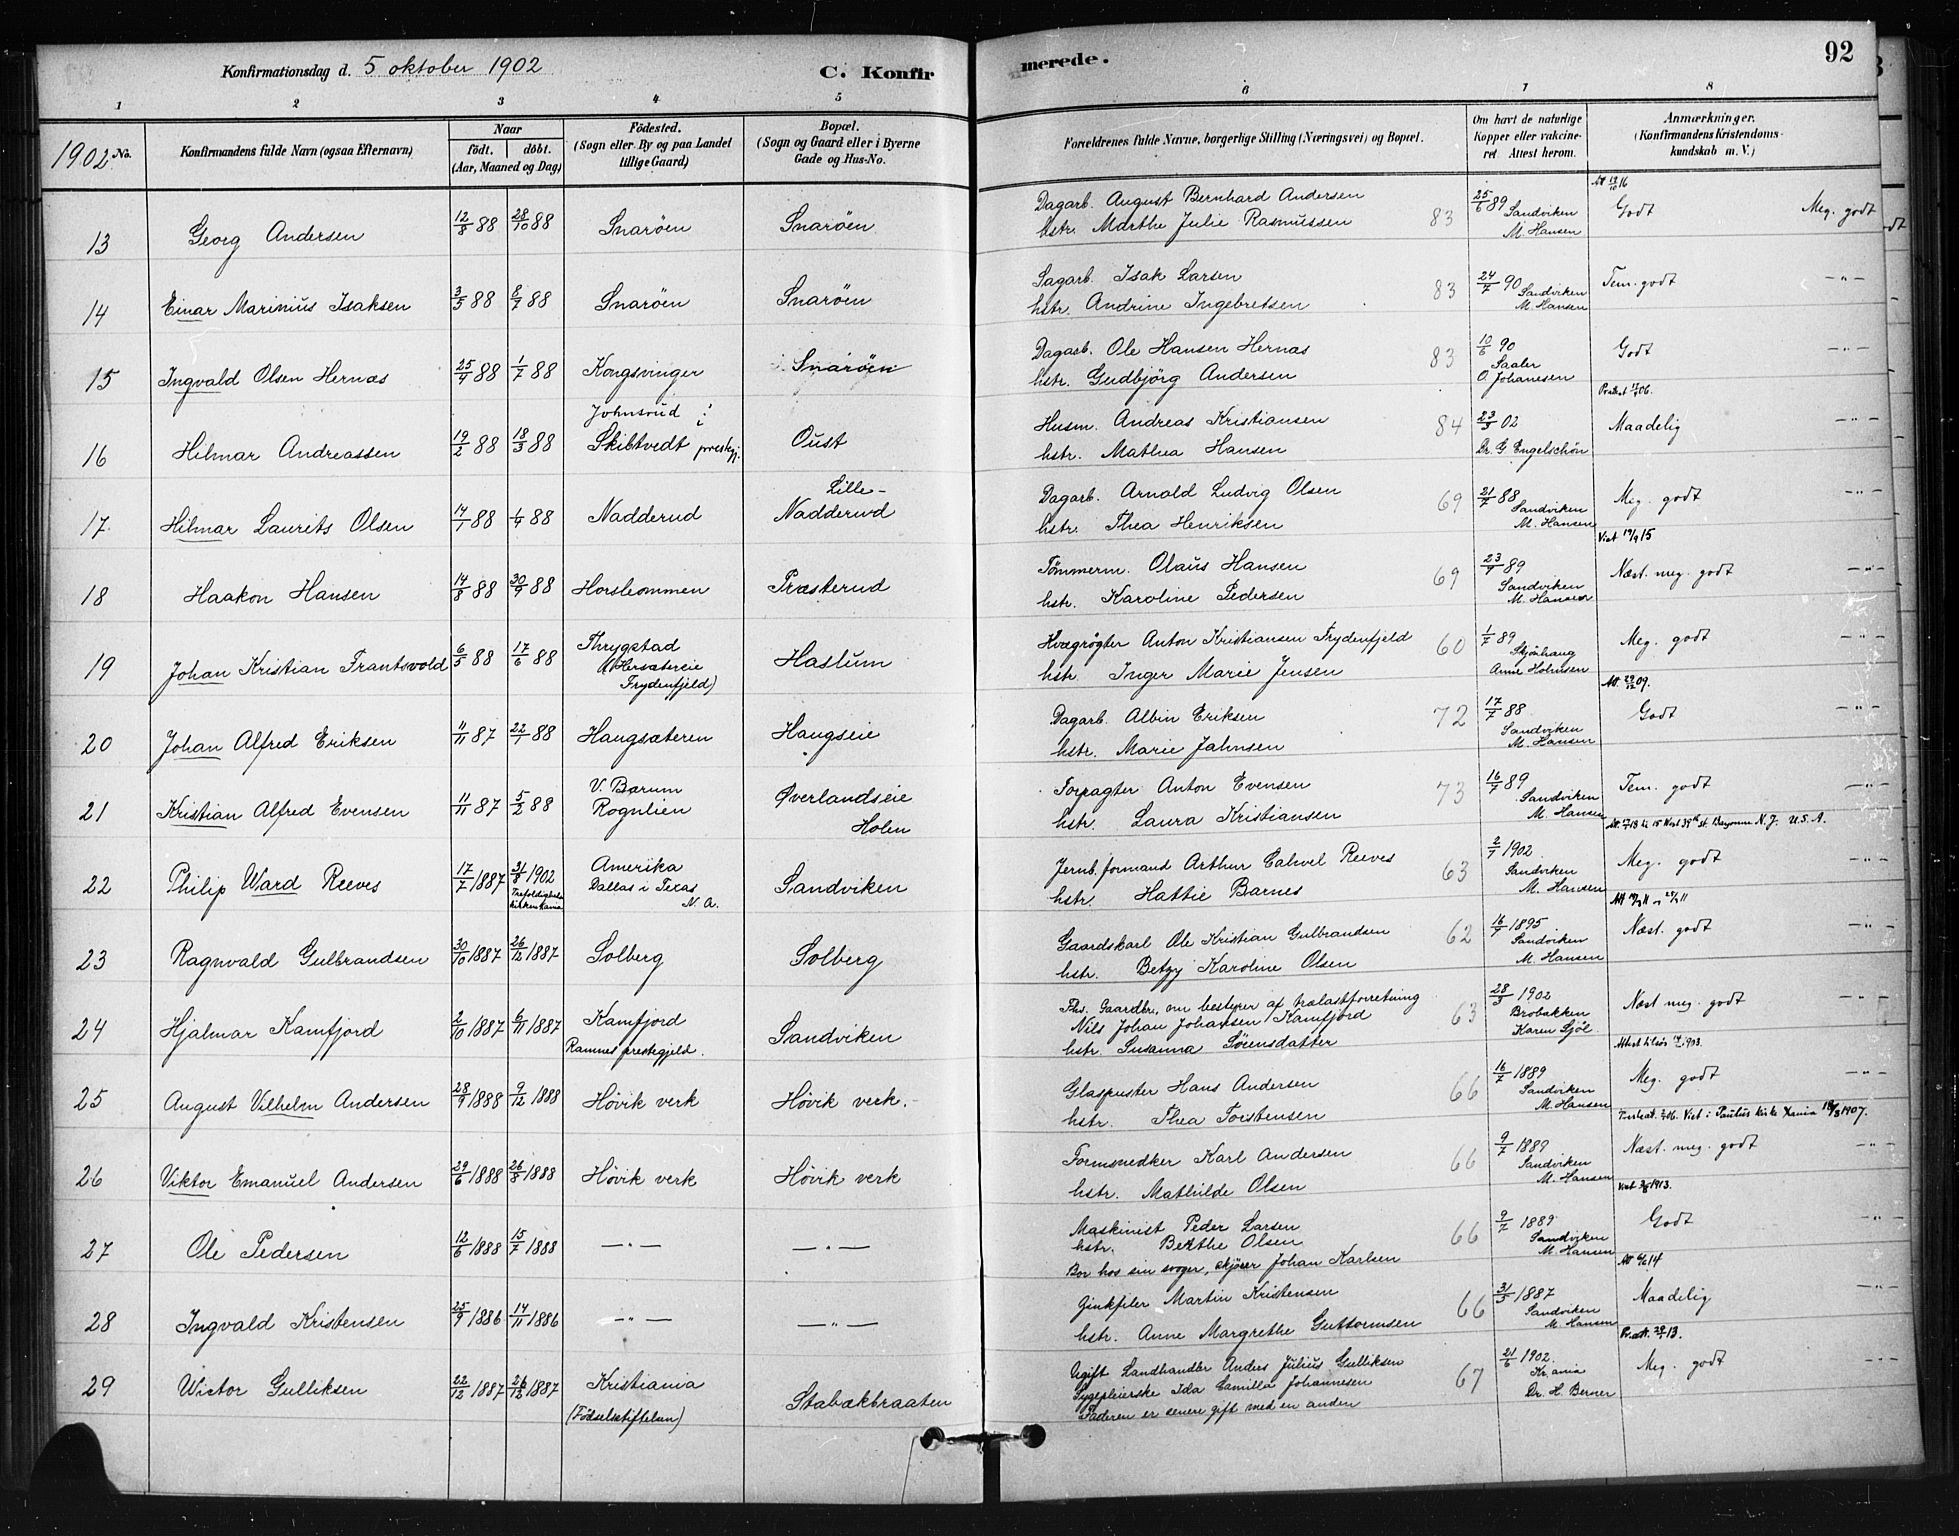 Konfirmationsdag d. 5 oktober 1902
C. Konfirmerede.
92
1 2 3 4 5 6 7 8
1902 No.
Konfirmandens fulde Navn (ogsaa Efternavn)
Naar
födt. döbt.
(Aar, Maaned og Dag)
Födested.
(Sogn eller By og paa Landet
tillige Gaard)
Bopæl.
(Sogn og Gaard eller i Byerne
Gade og Hus-No.
Forældrenes fulde Navne, borgerlige Stilling (Næringsvei) og Bopæl.
Om havt de naturlige
Kopper eller vakcine-
ret. Attest herom.
Anmærkninger.
(Konfirmandens Kristendoms-
kundskab m. V.)
13 Georg Andersen 12/8 88 28/10 88 Snarøen Snarøen
Dagarb. August Bernhard Andersen
hstr. Marthe Julie Rasmussen 83
25/6 89 Sandviken
M. Hansen
Godt Meg. godt
14 Einar Marinius Isaksen 3/5 88 8/7 88 Snarøen Snarøen
Sagarb. Isak Larsen
hstr. Andrine Ingebretsen 83
24/7 90 Sandviken
M. Hansen
Tem. godt —"—
15 Ingvald Olsen Hernæs 25/4 88 1/7 88 Kongsvinger Snarøen
Dagarb. Ole Hansen Hernæs
hstr. Gudbjörg Andersen 83
10/6 90
Saaler
O. Johanesen
Godt —"—
16 Hilmar Andreassen 19/2 88 18/3 88
Johnsrud i
Skibtvedt prestegj. Oust
Husm. Andreas Kristiansen
hstr. Mathea Hansen 84
23/3 02
Dr. G. Engelschön
Maadelig —"—
17 Hilmar Laurits Olsen 14/1 88 1/4 88 Nadderud
Lille-
Nadderud
Dagarb. Arnold Ludvig Olsen
hstr. Thea Henriksen 69
21/7 88
Sandviken
M. Hansen
Meg. godt —"—
18 Haakon Hansen 14/8 88 30/9 88 Horslommen Præsterud
Tømmerm. Olaus Hansen
hstr. Karoline Pedersen 69
23/9 89
Sandviken
M. Hansen
Næst. meg. godt —"—
19 Johan Kristian Frantsvold 6/5 88 17/6 88
Thrygstad
Frydenfjeld)
Haslum
Kvægrøgter Anton Kristiansen Frydenfjeld
hstr. Inger Marie Jensen 60
1/7 89
Anne Holmsen
Meg. godt —"—
20 Johan Alfred Eriksen 11/11 87 22/1 88 Haugsæteren Haugseie
Dagarb. Albin Eriksen
hstr. Marie Jahnsen 72
17/7 88
Sandviken
M. Hansen
Godt —"—
21 Kristian Alfred Evensen 11/11 87 5/2 88
V. Bærum
Rognlien
Øverlandseie
Holen
Forpagter Anton Evensen
hstr. Laura Kristiansen 73
16/7 89
Sandviken
M. Hansen
Tem. godt —"—
22 Philip Ward Reeves 17/7 1887 31/8 1902
Amerika
Dallas i Texas
N. A.
Sandviken
Jernb. formand Arthur Cahvel Reeves
hstr. Hattie Barnes 63
2/7 1902
Sandviken
M. Hansen
Meg. godt —"—
23 Ragnvald Gulbrandsen 30/10 1887 26/12 1887 Solberg Solberg
Gaardskarl Ole Kristian Gulbrandsen
hstr. Betzy Karoline Olsen 62
16/9 1895
Sandviken
M. Hansen
Næst. godt —"—
24 Hjalmar Kamfjord 2/10 1887 6/11 1887
Kamfjord
Ramnes prestegjeld.
Sandviken
Fhv. Gaardbr., nu bestyrer af trælastforretning
Nils Johan Johansen Kamfjord
hstr. Susanna Sørensdatter 63
28/3 1902
Brobakken
Karen Sjöl.
Næst meg. godt —"—
25 August Vilhelm Andersen 28/9 1888 9/12 1888 Høvik verk Høvik verk.
Glaspuster Hans Andersen
hstr. Thea Torstensen 66
16/7 1889
Sandviken
M. Hansen
Meg. godt —"—
26 Viktor Emanuel Andersen 29/6 1888 26/8 1888 Høvik verk Høvik verk
Formsnedker Karl Andersen
hstr. Mathilde Olsen 66
9/7 1889
Sandviken
M. Hansen
Næst. meg. godt —"—
27 Ole Pedersen 12/6 1888 15/7 1888 —"— —"—
Maskinist Peder Larsen
hstr. Berthe Olsen
Bor hos sin svoger, skjører Johan Karlsen 66
9/7 1889
Sandviken
M. Hansen
Godt —"—
28 Ingvald Kristensen 25/9 1886 14/11 1886 —"— —"—
Martin Kristensen
hstr. Anne Margrethe Guttormsen 66
31/5 1887
Sandviken
M. Hansen
Maadelig —"—
29 Victor Gulliksen 22/12 1887 26/12 1887
Kristiania
(Fødselsstiftelsen)
Stabækbraaten
Ugift Landhandler Anders Julius Gulliksen
Sygepleierske Ida Camilla Johannesen
Faderen er senere gift med en anden 67
21/6 1902.
Kr.ania
Dr. H. Berner
Meg. godt —"—